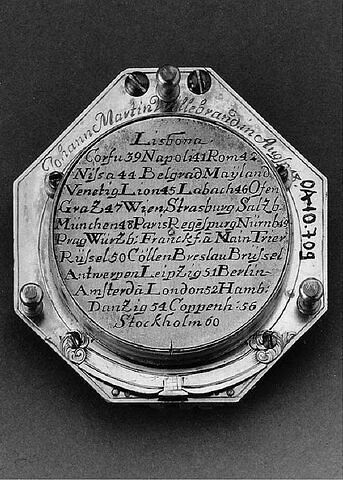 Johann Martin Willebrand in Augspurg
Lisbona
Corfu 39 Napoli 41 Rom 42
Nissa 44 Belgrad Mayland
Venetig Lion 45 Labach 46 Ofen
Graz 47 Wien, Strasburg Saltzb:
München 48 Paris Regespurg Nürnb 49
Prag Würtzb: Franckf: â Main Trier
Rüssel 50 Cöllen Breslau Brüssel
Antwerpen Leipzig 51 Berlin
Amsterdâ London 52 Hamb:
Danzig 54 Coppenh: 56
Stockholm 60